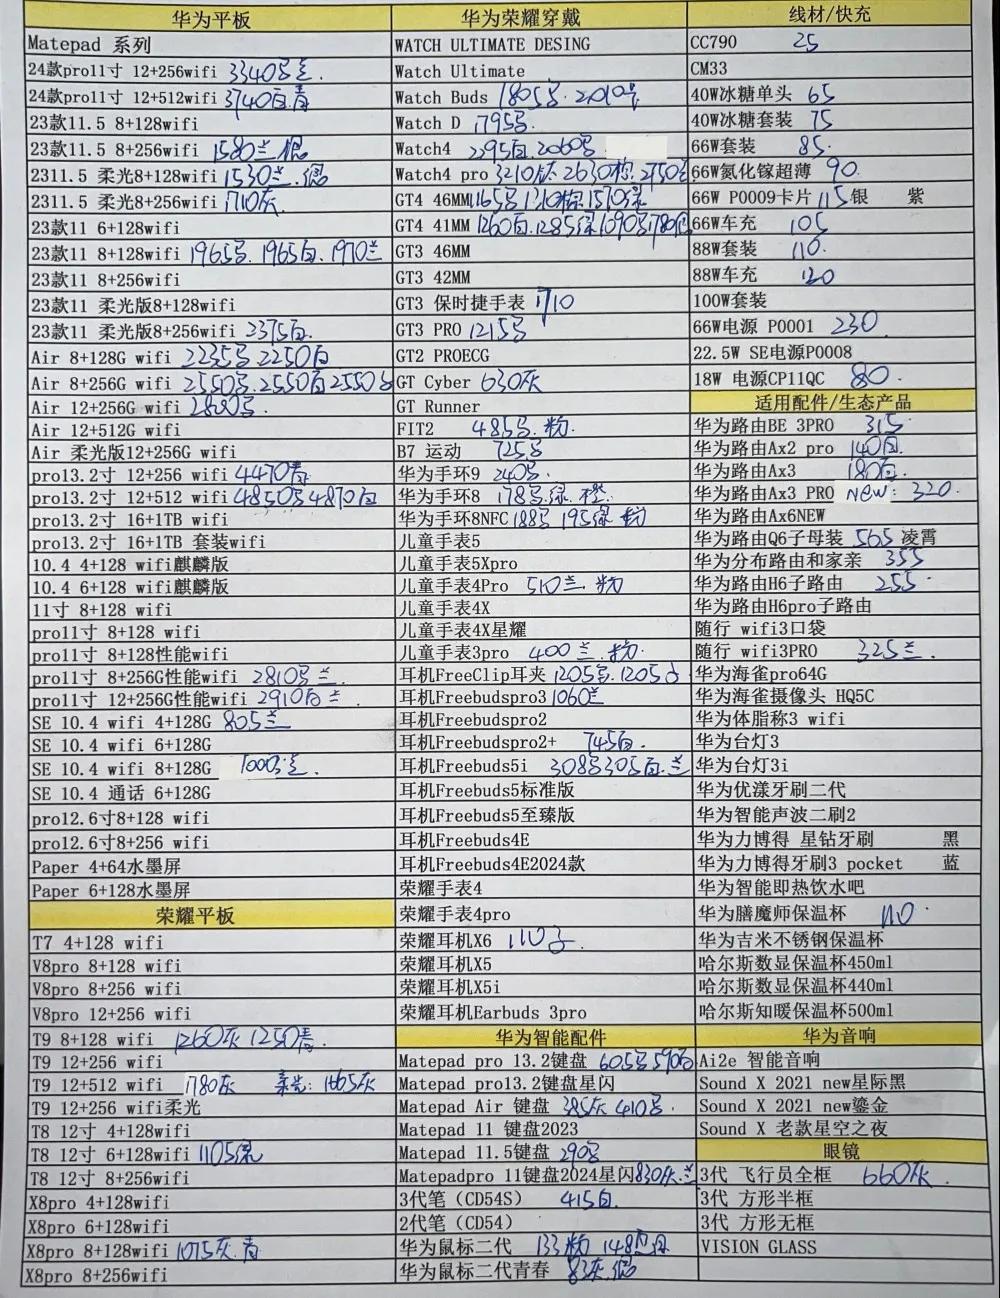 华为平板
Matepad 系列
24款pro11寸 12+256wifi 3340
24款pro11寸 12+512wifi 3740白.青
23款11.5 8+128wifi
23款11.5 8+256wifi 1580兰
2311.5 柔光8+128wifi 1530兰.
2311.5 柔光8+256wifi 1710灰
23款11 6+128wifi
23款11 8+128wifi 1965 . 1965白. 1970兰
23款11 8+256wifi
23款11 柔光版8+128wifi
23款11 柔光版8+256wifi 2375白.
Air 8+128G wifi 2235 2250白
Air 8+256G wifi 2550 . 2550白 2550
Air 12+256G wifi
Air 12+512G wifi
Air 柔光版12+256G wifi
pro13.2寸 12+256 wifi 4470青
pro13.2寸 12+512 wifi 4850 4870白
pro13.2寸 16+1TB wifi
pro13.2寸 16+1TB 套装wifi
10.4 4+128 wifi麒麟版
10.4 6+128 wifi麒麟版
11寸 8+128 wifi
pro11寸 8+128 wifi
pro11寸 8+128性能wifi
pro11寸 8+256G性能wifi 2810 兰.
pro11寸 12+256G性能wifi 2910白兰
SE 10.4 wifi 4+128G 805兰
SE 10.4 wifi 6+128G
SE 10.4 wifi 8+128G 1000
SE 10.4 通话 6+128G
pro12.6寸8+128 wifi
pro12.6寸8+256 wifi
Paper 4+64水墨屏
Paper 6+128水墨屏
荣耀平板
T7 4+128 wifi
V8pro 8+128 wifi
V8pro 8+256 wifi
V8pro 12+256 wifi
T9 8+128 wifi 1260灰 1250青.
T9 12+256 wifi
T9 12+512 wifi 1780灰 柔光: 1665灰
T9 12+256 wifi柔光
T8 12寸 4+128wifi
T8 12寸 6+128wifi 1105绿
T8 12寸 8+256wifi
X8pro 4+128wifi
X8pro 6+128wifi
X8pro 8+128wifi 1075灰.青
X8pro 8+256wifi
华为荣耀穿戴
WATCH ULTIMATE DESING
Watch Ultimate
Watch Buds 1805 .
Watch D 1795 .
Watch4 2295白.2060
Watch4 pro 3210灰 2630棕.
GT4 46MM 1165 1310棕 1570绿
GT4 41MM 1260白.1285绿1090
GT3 46MM
GT3 42MM
GT3 保时捷手表 1710
GT3 PRO 1215
GT2 PROECG
GT Cyber 630灰
GT Runner
FIT2 485 .粉.
B7 运动 725
华为手环9 240 .
华为手环8 178 .绿.橙.
华为手环8NFC 188 195绿 粉
儿童手表5
儿童手表5Xpro
儿童手表4Pro 510兰.粉
儿童手表4X
儿童手表4X星耀
儿童手表3pro 400兰.粉.
耳机FreeClip耳夹 1205 .1205
耳机Freebudspro3 1060兰
耳机Freebudspro2
耳机Freebudspro2+ 745白.
耳机Freebuds5i 308 305白.兰
耳机Freebuds5标准版
耳机Freebuds5至臻版
耳机Freebuds4E
耳机Freebuds4E2024款
荣耀手表4
荣耀手表4pro
荣耀耳机X6 110
荣耀耳机X5
荣耀耳机X5i
荣耀耳机Earbuds 3pro
华为智能配件
Matepad pro 13.2键盘 605 590白
Matepad pro13.2键盘星闪
Matepad Air 键盘 385灰 410 .
Matepad 11 键盘2023
Matepad 11.5键盘 290
Matepadpro 11键盘2024星闪830灰.兰
3代笔（CD54S） 415白.
2代笔（CD54）
华为鼠标二代 133粉 148
华为鼠标二代青春 83灰.
线材/快充
CC790 25
CM33
40W冰糖单头 65
40W冰糖套装 75
66W套装 85.
66W氮化镓超薄 90.
66W P0009卡片 115银 紫
66W车充 105
88W套装 110.
88W车充 120
100W套装
66W电源 P0001 230.
22.5W SE电源P0008
18W 电源CP11QC 80.
适用配件/生态产品
华为路由BE 3PRO 315
华为路由Ax2 pro 140白.
华为路由Ax3 180白.
华为路由Ax3 PRO NEW: 320.
华为路由Ax6NEW
华为路由Q6子母装 565 凌霄
华为分布路由和家亲 355
华为路由H6子路由 255.
华为路由H6pro子路由
随行 wifi3口袋
随行 wifi3PRO 325兰.
华为海雀pro64G
华为海雀摄像头 HQ5C
华为体脂称3 wifi
华为台灯3
华为台灯3i
华为优漾牙刷二代
华为智能声波二刷2
华为力博得 星钻牙刷 黑
华为力博得牙刷3 pocket 蓝
华为智能即热饮水吧
华为膳魔师保温杯 110.
华为吉米不锈钢保温杯
哈尔斯数显保温杯450ml
哈尔斯数显保温杯440ml
哈尔斯知暖保温杯500ml
华为音响
Ai2e 智能音响
Sound X 2021 new星际黑
Sound X 2021 new鎏金
Sound X 老款星空之夜
眼镜
3代 飞行员全框 660灰.
3代 方形半框
3代 方形无框
VISION GLASS